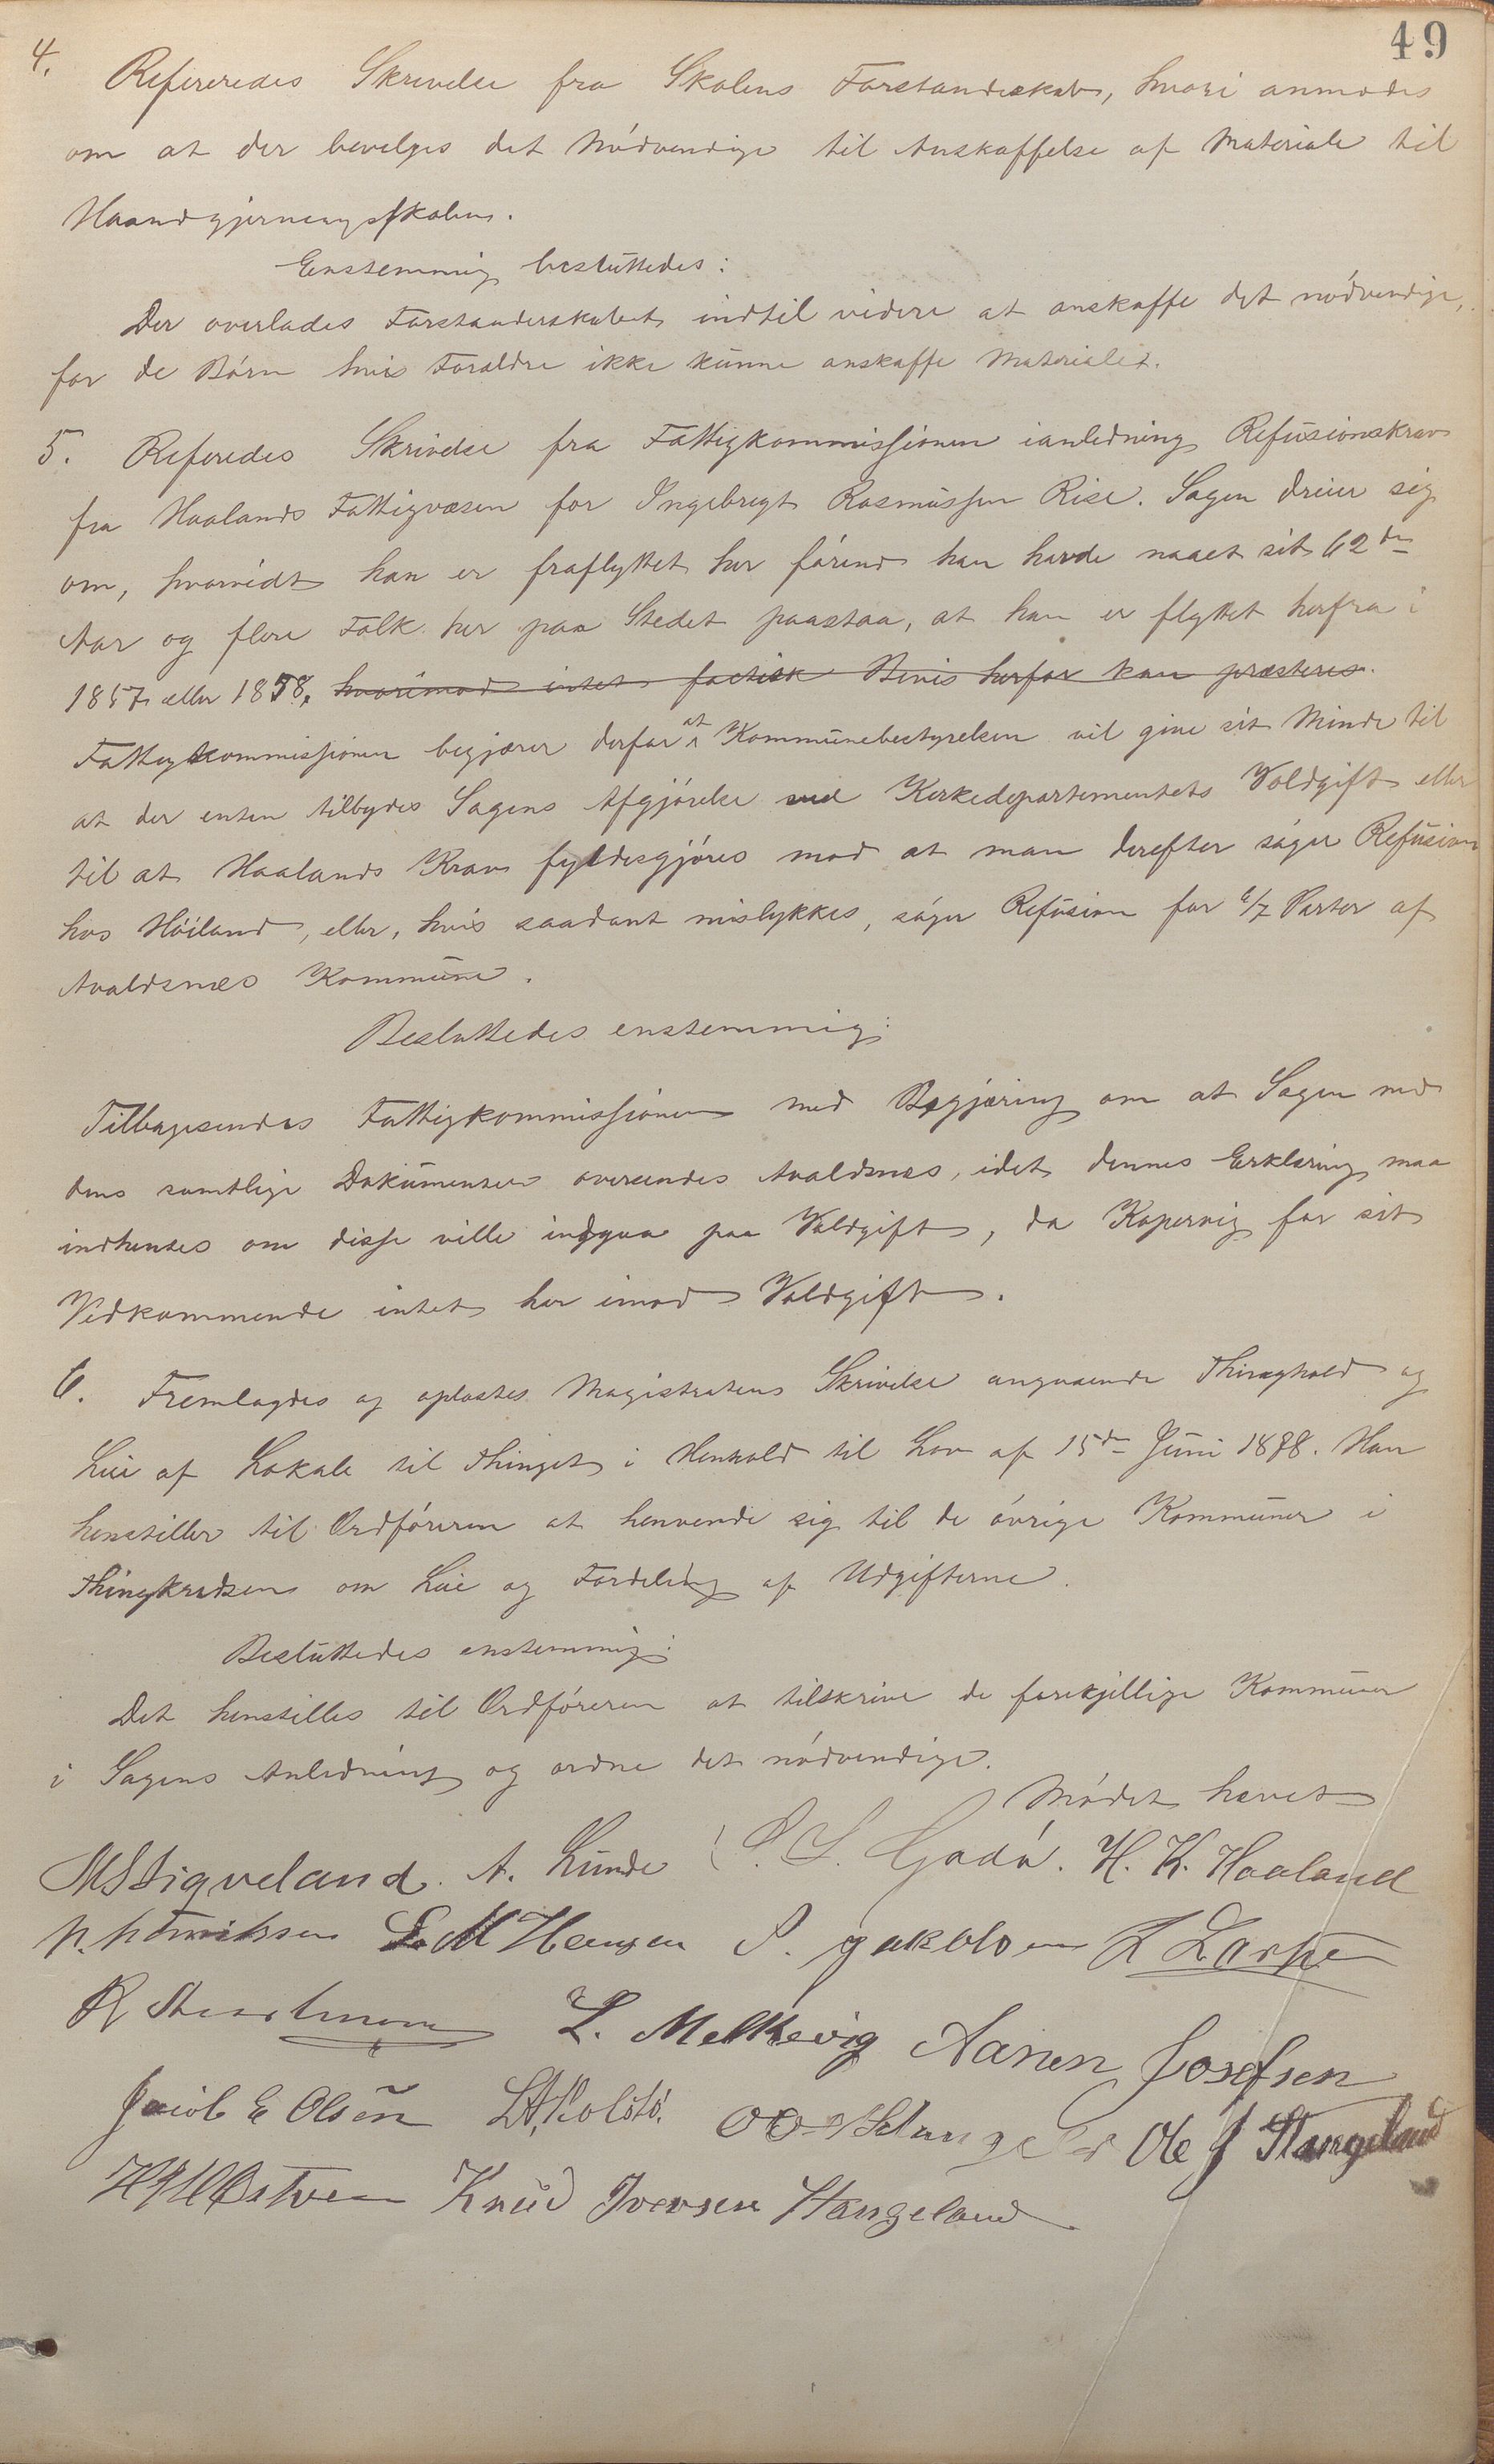 49
4. Refereredes Skrivelse fra Skolens Forstanderskab, hvori anmodes
om at der bevilges det Nödvendige til Anskaffelse af Materiale til
Haandgjerningsskolen.
Enstemmig besluttedes:
Der overlades Forstanderskabet indtil videre at anskaffe det nödvendige,
for de Börn hvis Foraldre ikke kunne anskaffe Materialet.
5. Referedes Skrivelse fra Fattigkommissionen ianledning Refusionskrav
fra Haalands Fattigvæsen for Ingebregt Rasmussen Rise. Sagen dreier sig
om, hvorvidt han er fraflyttet her förend han havde naaet sit 62de
Aar og flere Folk her paa Stedet paastaa, at han er flyttet herfra i
1857 eller 1858, hvorimod intet factisk Bevis herfor kan præsteres.
Fattigkommissionen begjærer derfor at Kommunebestyrelsen vil give sit Minde til
at der enten tilbydes Sagens Afgjörelse ved Kirkedepartementets Voldgift eller
til at Haalands Krav fyldesgjöres mod at man derefter söger Refusion
hos Höiland, eller, hvis saadant mislykkes, söger Refusion for 6/7 Parter af
Avaldsnæs Kommune.
Besluttedes enstemmig:
Tilbagesendes Fattigkommissionen med Begjæring om at Sagen med
dens samtlige Dokumenter oversendes Avaldsnæs, idet dennes Erklæring maa
indhentes om disse ville indgaa paa Voldgift, da Kopervig for sit
Vedkommende intet har imod Voldgift.
6. Fremlagdes og oplæstes Magistratens Skrivelse angaaende Thinghold og
Leie af Lokale til Thinget i Henhold til Lov af 15de Juni 1888. Han
henstiller til Ordföreren at henvende sig til de övrige Kommuner i
Thingkredsen om Leie og Fordeling af Udgifterne.
Besluttedes enstemmig:
Det henstilles til Ordföreren at tilskrive de forskjellige Kommuner
i Sagens Anledning og ordne det nödvendige.
Mödet hævet
MStiqveland. A. Lunde H. K. Haaland
L. M Hansen P. Jakobsen
L. Melkevig Aanen Josefsen
Jacob E Olsen Ole J Stangeland
Knud Iversen Stangeland